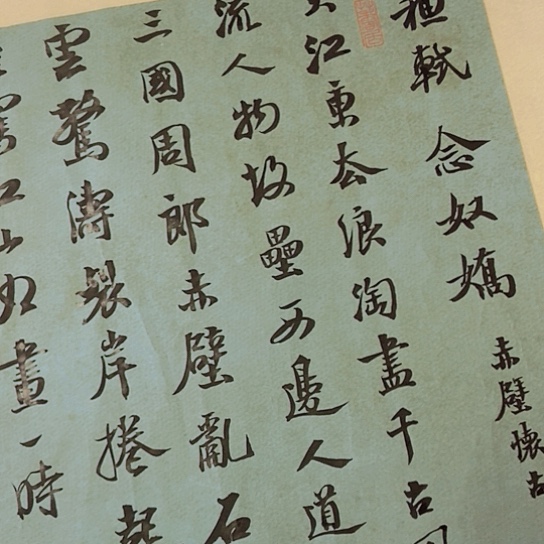 軾 念奴嬌 赤壁懷古
江東去浪淘盡千古
流人物故壘西邊人道
三國周郎赤壁亂石
雲驚濤裂岸捲起
江山如畫一時